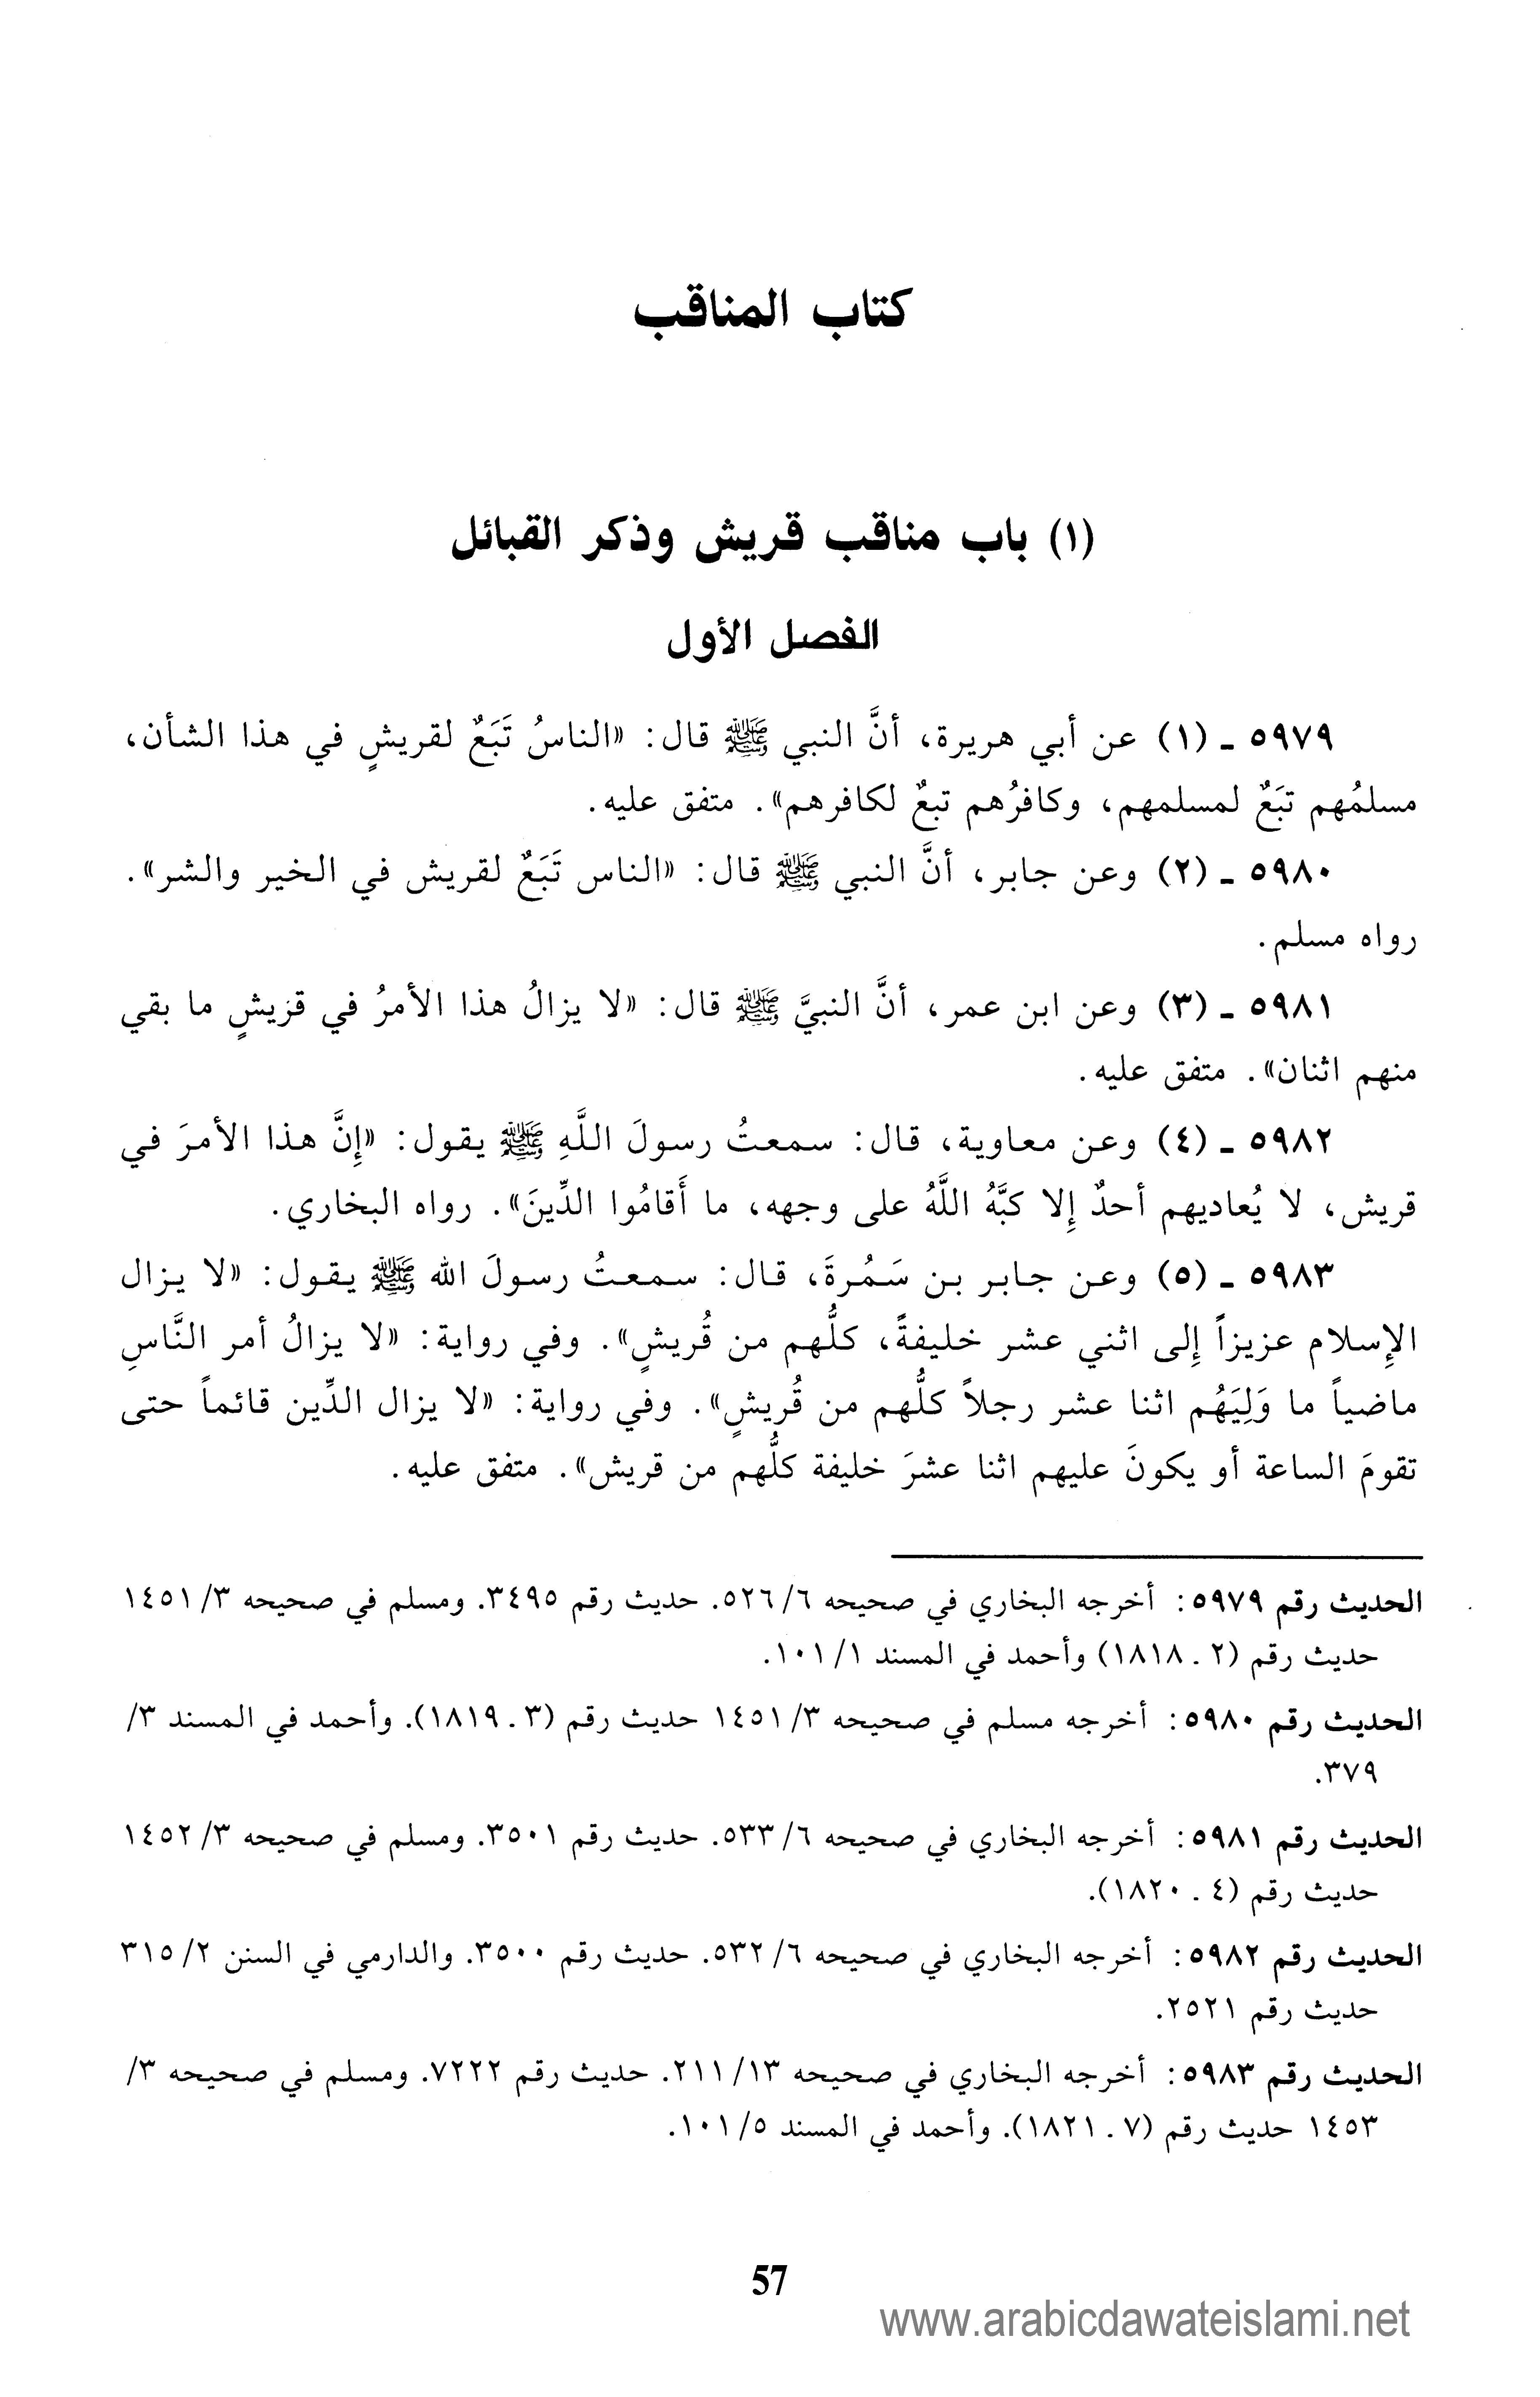 كتاب المناقب
(١) باب مناقب قريش وذكر القبائل
الفصل الأول
٥٩٧٩ ـ (١) عن أبي هريرة، أنَّ النبي ﷺ قال: «الناسُ تَبَعٌ لقريشٍ في هذا الشأن،
مسلمُهم تبَعٌ لمسلمهم، وكافرُهم تبعٌ لكافرهم». متفق عليه.
٥٩٨٠ ـ (٢) وعن جابر، أنَّ النبي ﷺ قال: «الناس تَبَعٌ لقريش في الخير والشر».
رواه مسلم.
٥٩٨١ ـ (٣) وعن ابن عمر، أنَّ النبيَّ ﷺ قال: «لا يزالُ هذا الأمرُ في قريشٍ ما بقي
منهم اثنان». متفق عليه.
٥٩٨٢ ـ (٤) وعن معاوية، قال: سمعتُ رسولَ اللَّهِ ﷺ يقول: «إِنَّ هذا الأمرَ في
قريش، لا يُعاديهم أحدٌ إِلا كبَّهُ اللَّهُ على وجهه، ما أَقامُوا الدِّينَ». رواه البخاري.
٥٩٨٣ ـ (٥) وعن جابر بن سَمُرةَ، قال: سمعتُ رسولَ الله ﷺ يقول: «لا يزال
الإِسلام عزيزاً إِلى اثني عشر خليفةً، كلُّهم من قُريشٍ». وفي رواية: «لا يزالُ أمر النَّاسِ
ماضياً ما وَلِيَهُم اثنا عشر رجلاً كلُّهم من قُريشٍ». وفي رواية: «لا يزال الدِّين قائماً حتى
تقومَ الساعة أو يكونَ عليهم اثنا عشرَ خليفة كلُّهم من قريش». متفق عليه.
الحديث رقم ٥٩٧٩: أخرجه البخاري في صحيحه ٦/ ٥٢٦. حديث رقم ٣٤٩٥. ومسلم في صحيحه ٣/ ١٤٥١
حديث رقم (٢ ـ ١٨١٨) وأحمد في المسند ١/ ١٠١.
الحديث رقم ٥٩٨٠: أخرجه مسلم في صحيحه ٣/ ١٤٥١ حديث رقم (٣ ـ ١٨١٩). وأحمد في المسند ٣/
٣٧٩.
الحديث رقم ٥٩٨١: أخرجه البخاري في صحيحه ٦/ ٥٣٣. حديث رقم ٣٥٠١. ومسلم في صحيحه ٣/ ١٤٥٢
حديث رقم (٤ ـ ١٨٢٠).
الحديث رقم ٥٩٨٢: أخرجه البخاري في صحيحه ٦/ ٥٣٢. حديث رقم ٣٥٠٠. والدارمي في السنن ٢/ ٣١٥
حديث رقم ٢٥٢١.
الحديث رقم ٥٩٨٣: أخرجه البخاري في صحيحه ١٣/ ٢١١. حديث رقم ٧٢٢٢. ومسلم في صحيحه ٣/
١٤٥٣ حديث رقم (٧ ـ ١٨٢١). وأحمد في المسند ٥/ ١٠١.
57
www.arabicdawateislami.net